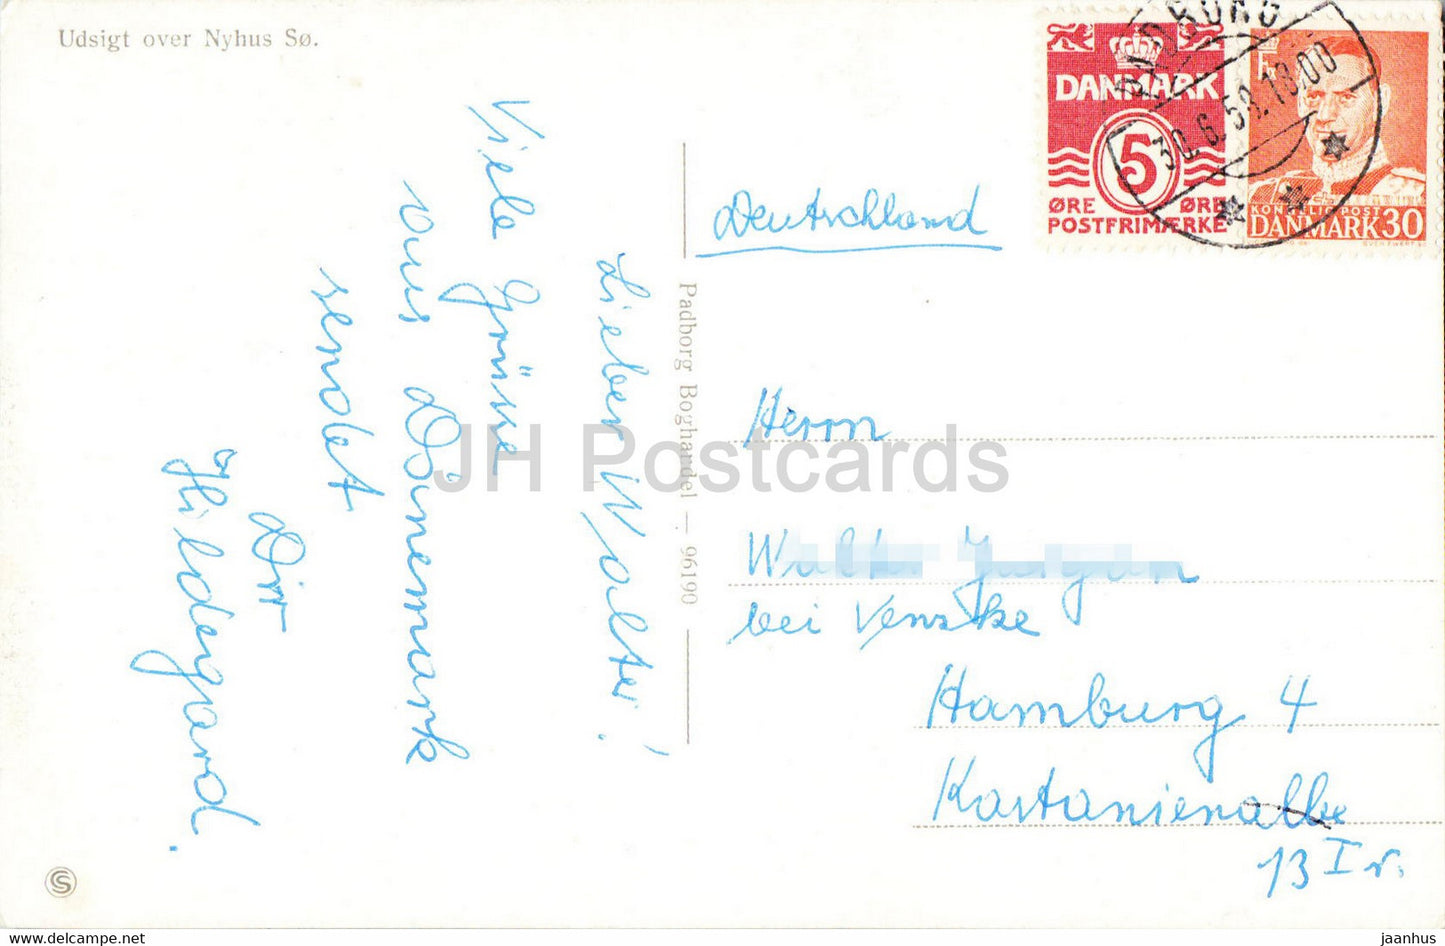 Udsigt over Nyhus Sø.
Lieber Walter!
Viele Grüsse
aus Dänemark
sendet
Dir
Hildegard.
Padborg Boghandel — 96190
DANMARK
5
ØRE ØRE
POSTFRIMÆRKE
KONGELIG POST
DANMARK 30
PADBORG
30.6.59.18.00
Deutschland
Herrn
bei Venzke
Hamburg 4
Kastanienallee
13 I r.
JH Postcards
jaanhus